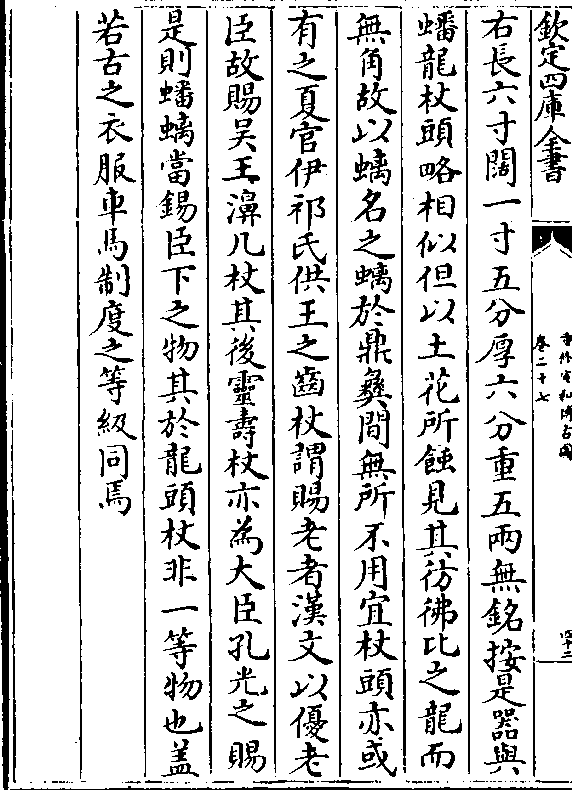 欽定四庫全書
重修宣和博古圖
卷二十七
四十二
右長六寸闊一寸五分厚六分重五兩無銘按是器與
蟠龍杖頭略相似但以土花所蝕見其彷彿比之龍而
無角故以螭名之螭於鼎彝間無所不用宜杖頭亦或
有之夏官伊祁氏供王之齒杖謂賜老者漢文以優老
臣故賜吴王濞几杖其後靈壽杖亦為大臣孔光之賜
是則蟠螭當錫臣下之物其於龍頭杖非一等物也盖
若古之衣服車馬制度之等級同焉